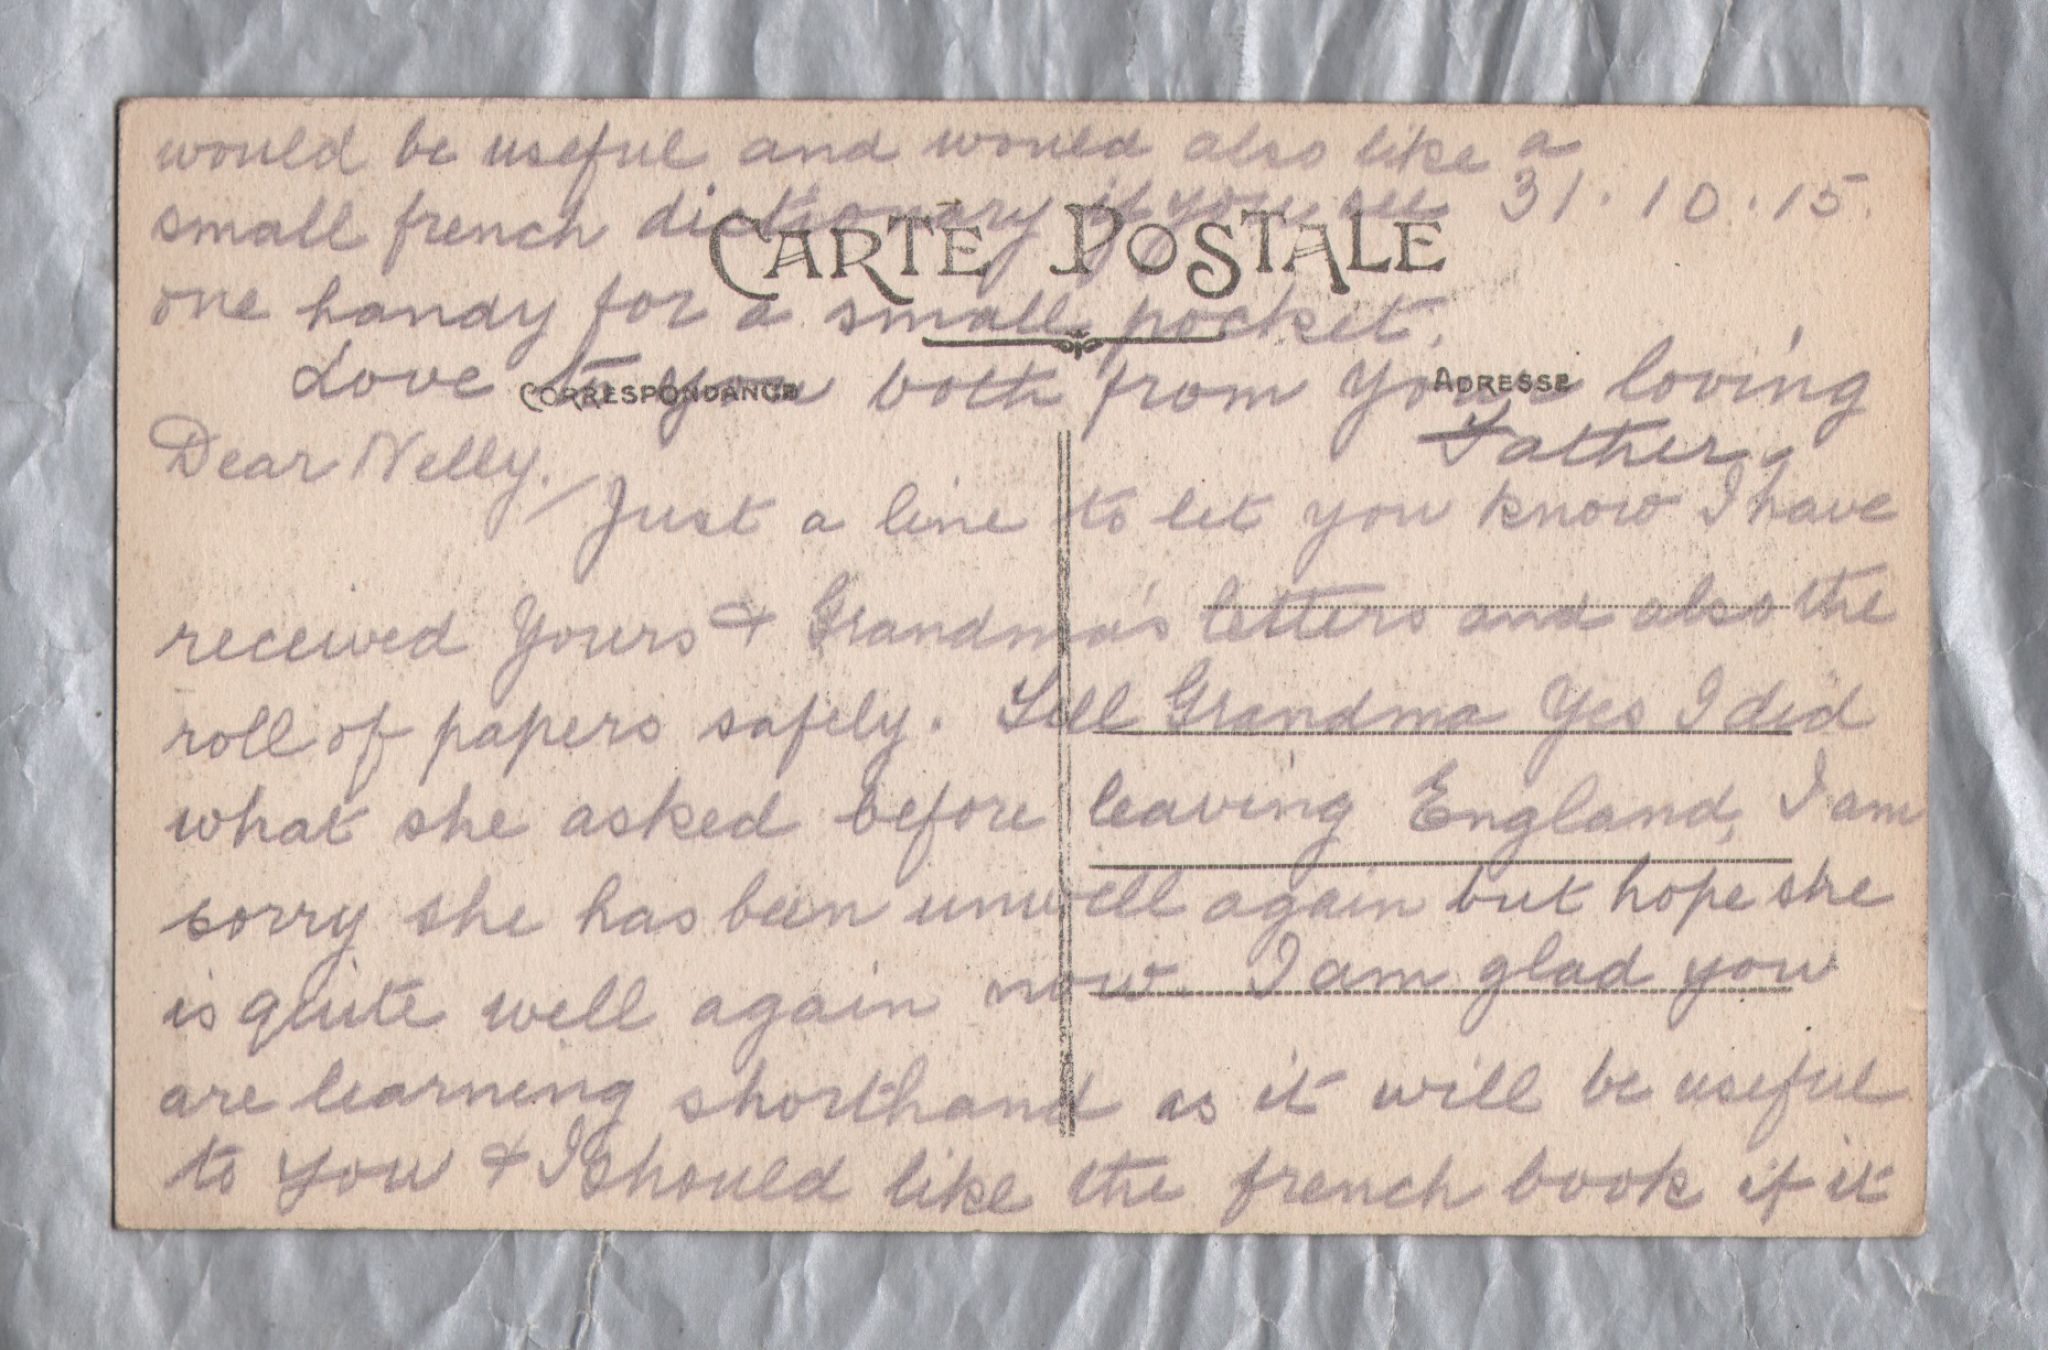 would be useful and would also like a
31.10.15.
small french dictionary if you see
CARTE POSTALE
one handy for a small pocket.
Love to you both from Your loving
CORRESPONDANCE
ADRESSE
Father.
Dear Nelly.
Just a line to let you know I have
received Yours & Grandma's letters and also the
roll of papers safely. Tell Grandma Yes I did
what she asked before leaving England, I am
sorry she has been unwell again but hope she
is quite well again now. I am glad you
are learning shorthand as it will be useful
to you & I should like the french book if it